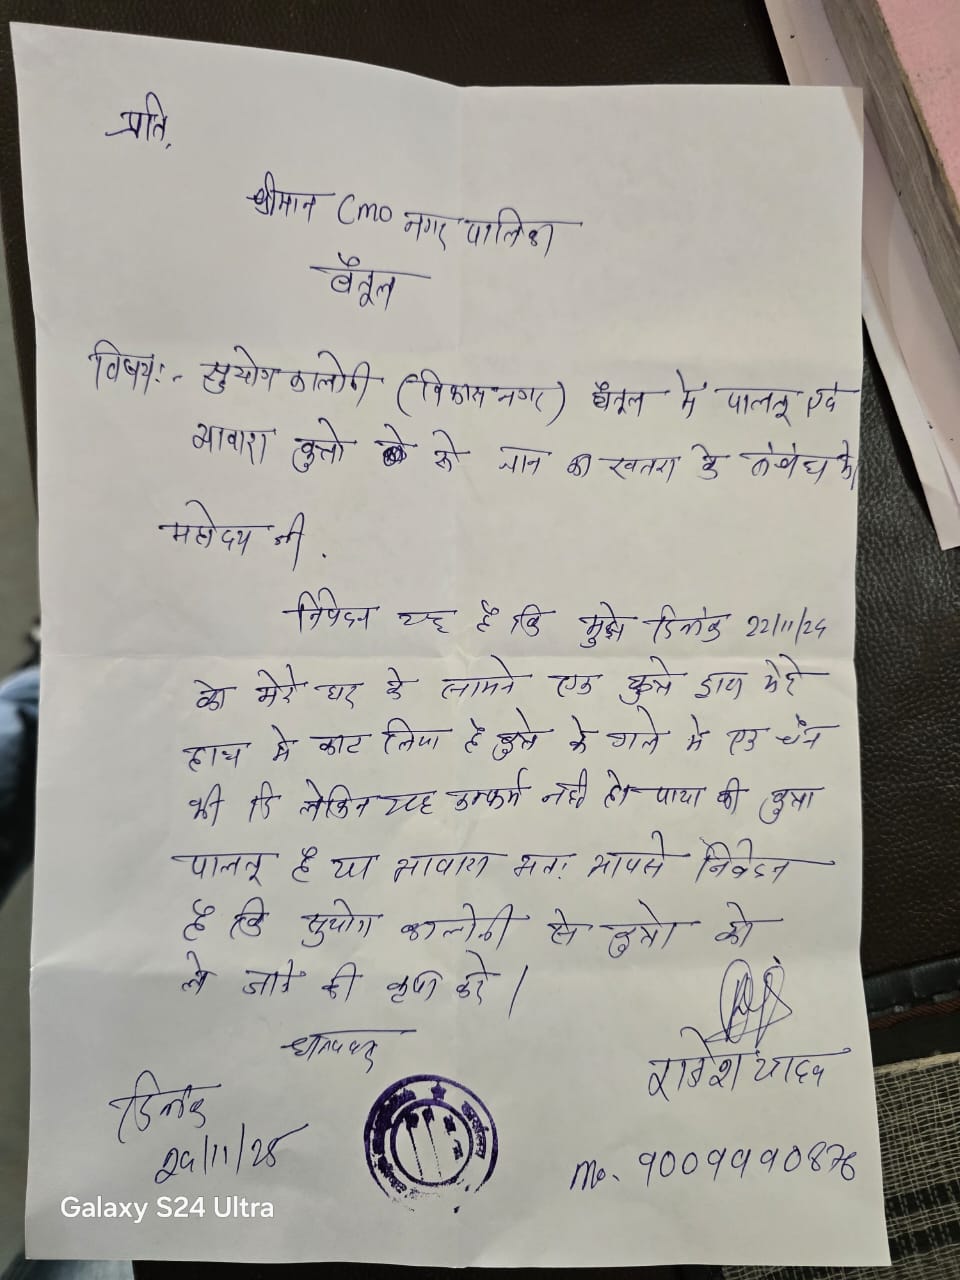 प्रति,
श्रीमान CMO नगर पालिका
बैतूल
विषय:- सुयोग कालोनी (विकास नगर) बैतूल मे पालतू एवं
आवारा कुत्तो से जान का खतरा के संबंध मे
महोदय जी.
निवेदन यह है कि मुझे दिनांक 22/11/25
को मेरे घर के सामने एक कुत्ते द्वारा मेरे
हाथ मे काट लिया है कुत्ते के गले मे एक चैन
भी थी लेकिन यह कन्फर्म नही हो पाया की कुत्ता
पालतू है या आवारा अतः आपसे निवेदन
है कि सुयोग कालोनी से कुत्तो को
ले जाने की कृपा करे।
धन्यवाद
राकेश यादव
दिनांक
24/11/25
Mo.
Galaxy S24 Ultra